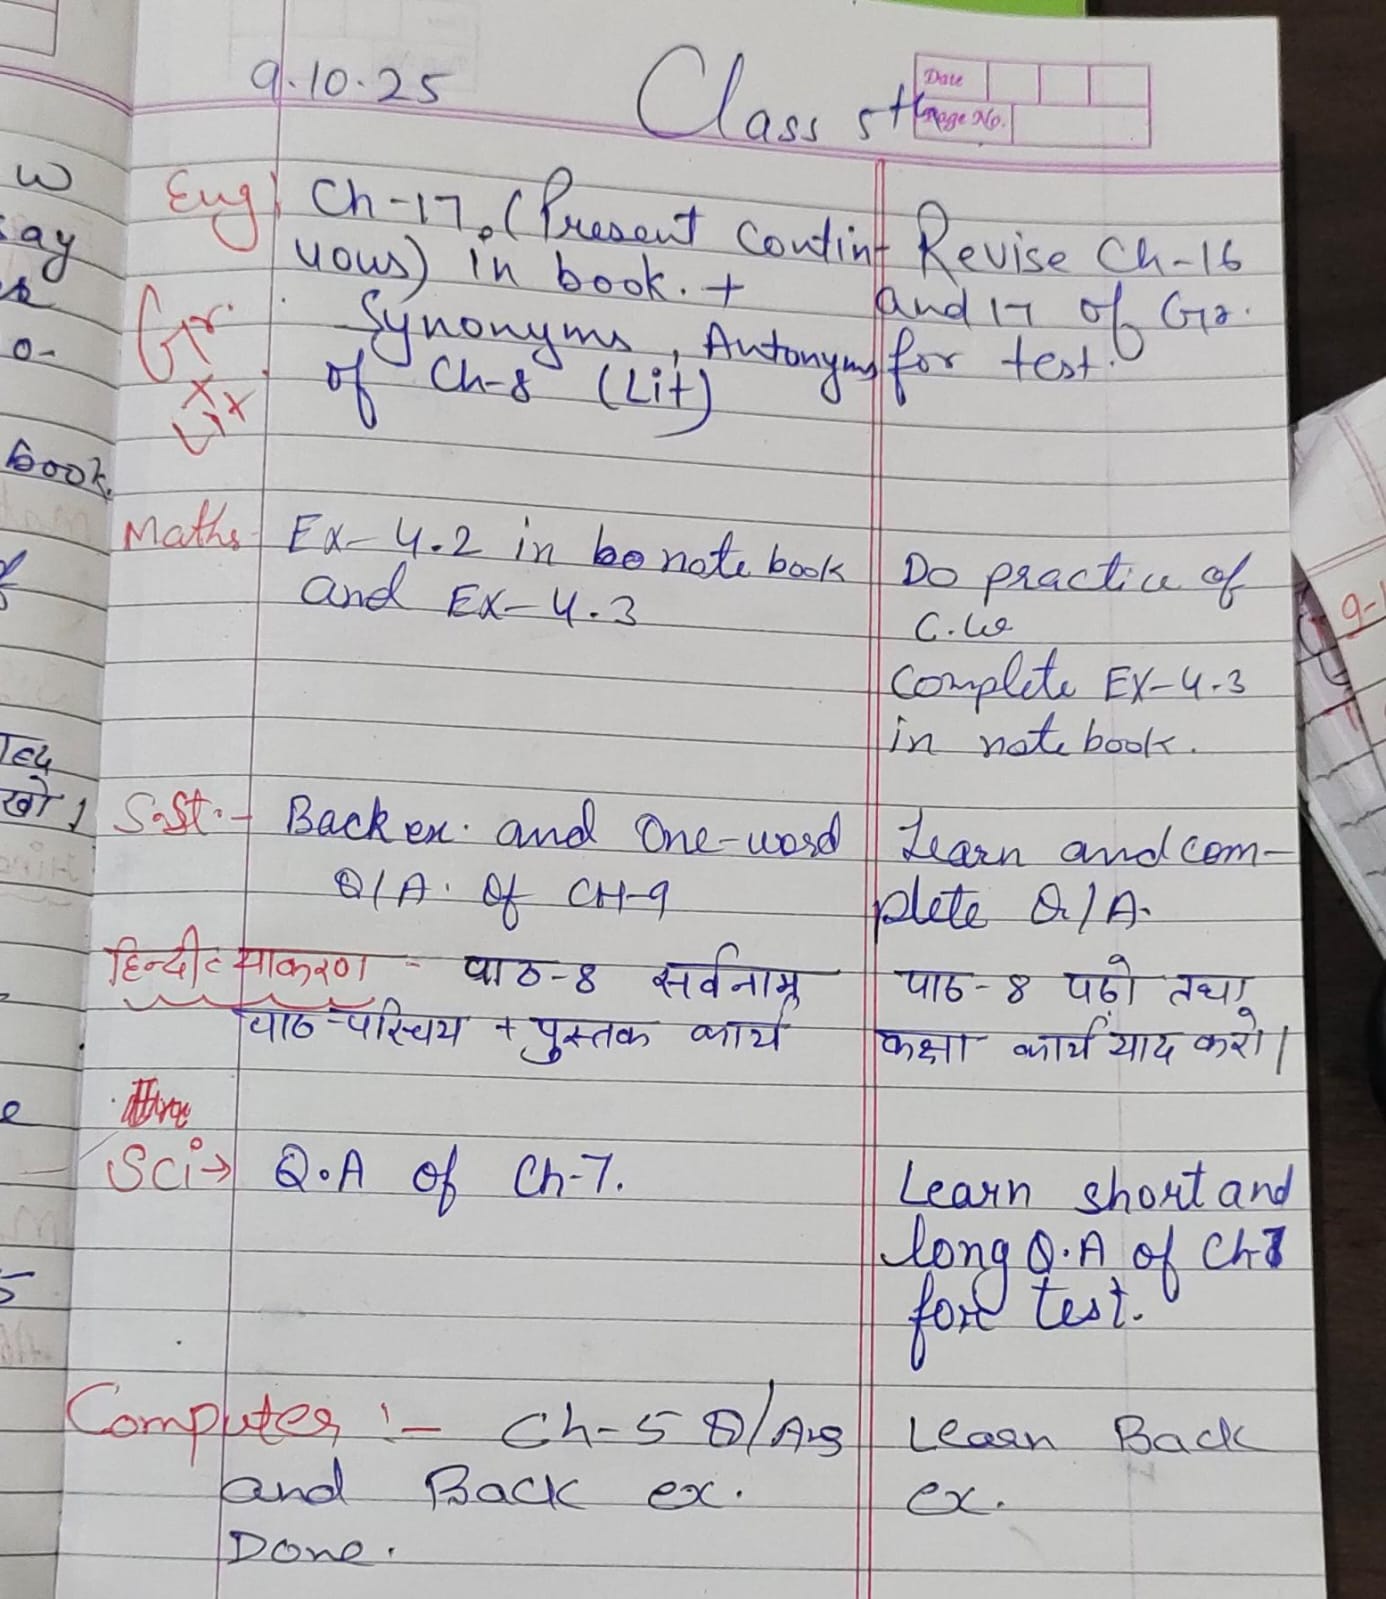 9.10.25 Class 5th
Date
Page No.
Eng Ch-17. (Present Contin-
uous) in book. +
Gr. Synonyms, Antonyms
of Ch-8 (Lit)
Revise Ch-16
and 17 of Gr.
for test.
Maths- Ex- 4.2 in notebook
and Ex- 4.3
Do practice of
C.W
Complete Ex-4.3
in notebook.
S.St:- Back ex. and One-word
Q/A. Of CH-9
Learn and com-
plete Q/A.
हिन्दी व्याकरण - पाठ-8 सर्वनाम
पाठ-परिचय + पुस्तक कार्य
पाठ-8 पढ़ो तथा
कक्षा कार्य याद करो।
Sci→ Q.A of Ch-7.
Learn short and
long Q.A of Ch-7
for test.
Computer :- Ch-5 Q/Ans
and Back ex.
Done.
Learn Back
ex.
w
ay
book.
खो।
e
5